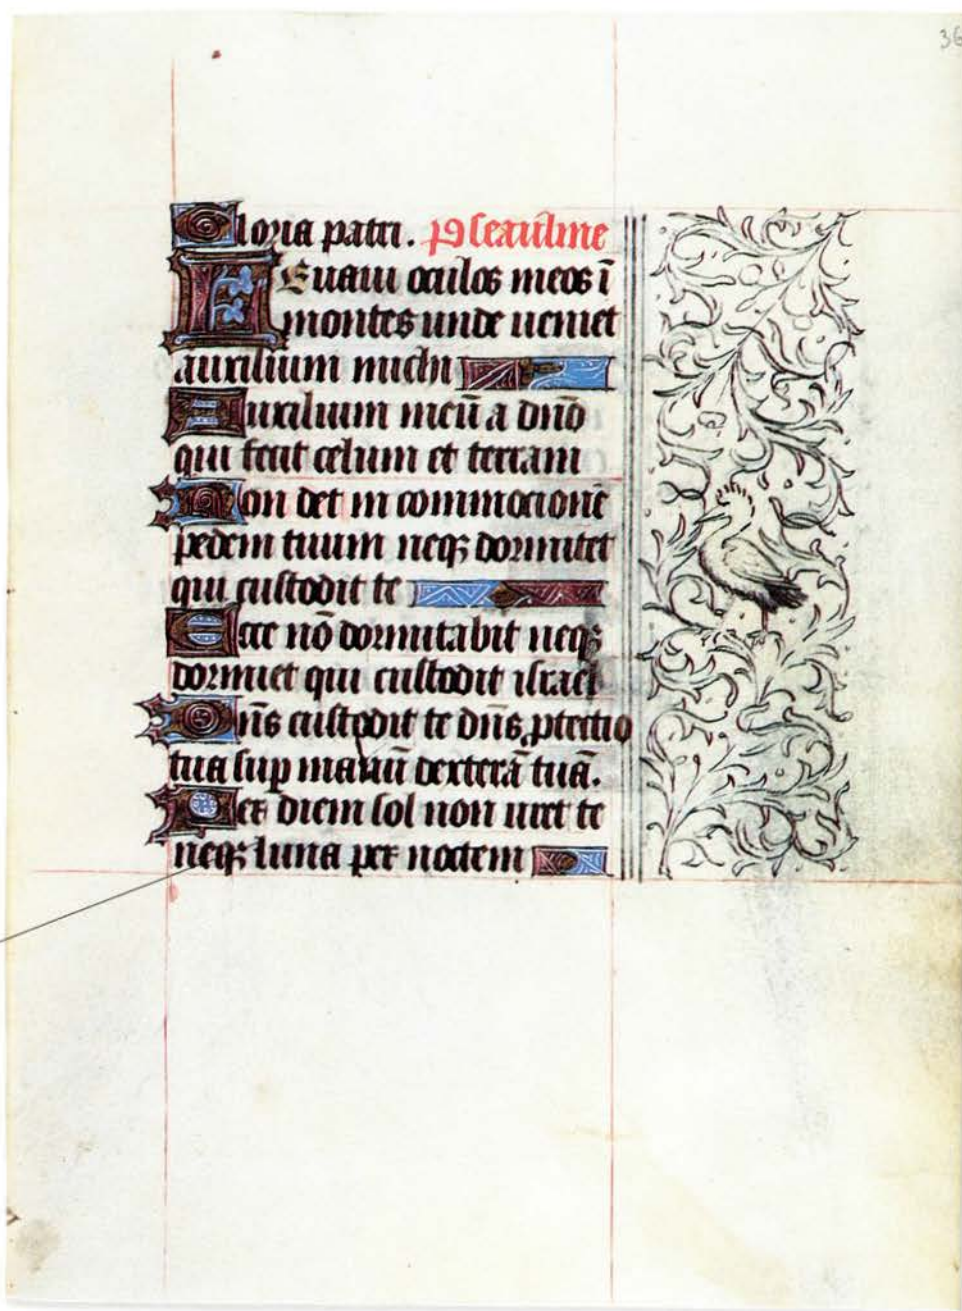 36
Gloria patri. ps̄ seculine
Leuaui oculos meos ī
montes unde ueniet
auxilium michi
Auxilium meū a dn̄o
qui fecit celum et terram
Non det in commocionē
pedem tuum neqꝫ dormitet
qui custodit te
Ecce nō dormitabit neqꝫ
dormiet qui custodit israel
Dn̄s custodit te dn̄s ꝓtectio
tua sup manū dexterā tuā.
Per diem sol non uret te
neqꝫ luna per noctem